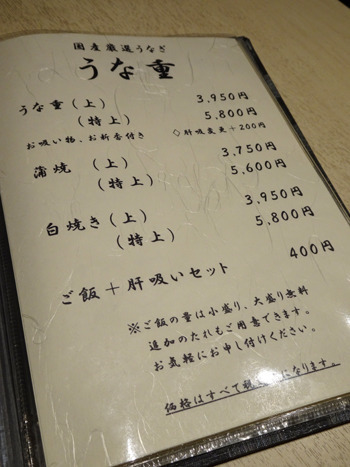 国産厳選うなぎ
うな重
うな重（上） 3,950円
（特上） 5,800円
お吸い物、お新香付き ◇肝吸変更＋200円
蒲焼（上） 3,750円
（特上） 5,600円
白焼き（上） 3,950円
（特上） 5,800円
ご飯＋肝吸いセット 400円
※ご飯の量は小盛り、大盛り無料
追加のたれもご用意できます。
お気軽にお申し付けください。
価格はすべて税 になります。